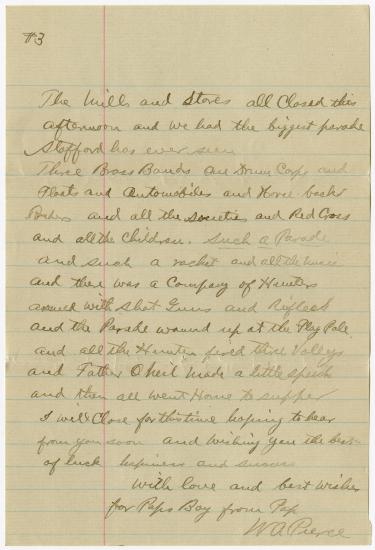 #3
The Mills and Stores all Closed this
afternoon and we had the biggest parade
Stafford has ever seen
Three Brass Bands an Drum Corps and
Floats and Automobiles and Horse back
and all the Societies and Red Cross
and all the Children. Such a Parade
and such a racket and all the
and there was a Company of Hunters
armed with Shot Guns and
and the Parade wound up at the Flag Pole
and all the Hunters fired three Volleys
and Father O Neil made a little speech
and then all went Home to supper
I will Close for this time hoping to hear
from you soon and Wishing you the best
of luck hapiness and success
With love and best Wishes
for Paps Boy from Pap
W A Pierce